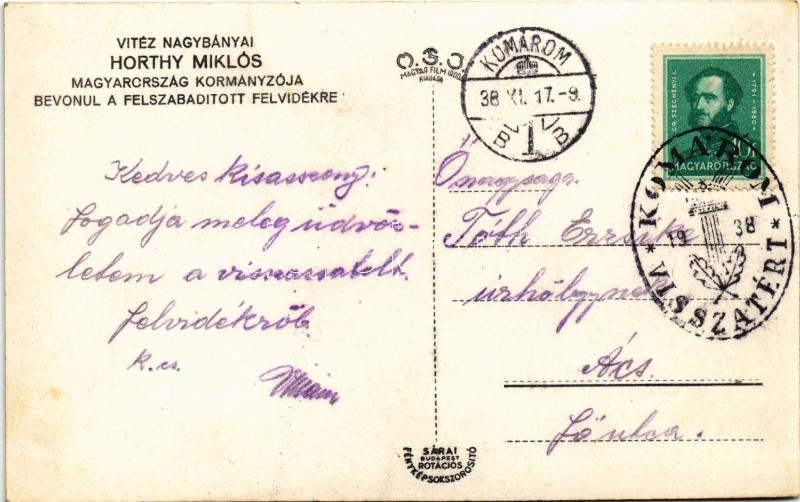 VITÉZ NAGYBÁNYAI
HORTHY MIKLÓS
MAGYARCRSZÁG KORMÁNYZÓJA
BEVONUL A FELSZABADITOTT FELVIDÉKRE
Kedves Kisasszony!
Fogadja meleg üdvöz-
letem a visszacsatolt
felvidékről.
K. cs.
O.S.J.
MAGYAR FILM IRODA
KIADÁSA
KOMÁROM
38 XI. 17.-9.
1
GR. SZÉCHENYI I.
1791-1860
10f
MAGYARORSZÁG
* KOMÁROM *
19 38
VISSZATÉRT
Önagysága
Tóth Erzsike
úrhölgynek
Ács.
Fő utca.
SÁRAI
BUDAPEST
ROTÁCIÓS
FÉNYKÉPSOKSZOROSITÓ